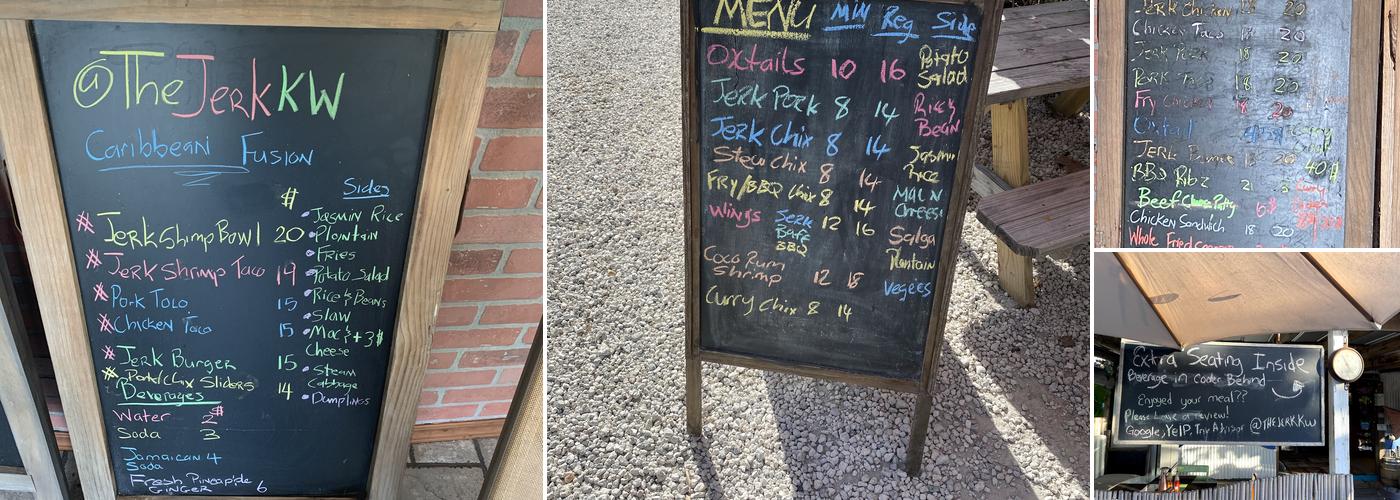 @TheJerkKW
Caribbean Fusion
$
Sides
# Jerk Shimp Bowl 20
# Jerk Shrimp Taco 19
# Pork Taco 15
# Chicken Taco 15
# Jerk Burger 15
# Pork/Chix Sliders 14
Beverages
Water 2$
Soda 3
Jamaican 4
Soda
Fresh Pineapple
GINGER 6
• Jasmin Rice
• Plantain
• Fries
• Potato Salad
• Rice & Beans
• Slaw
• Mac & +3$
Cheese
• Steam
Cabbage
• Dumplings
MENU Min Reg Side
Oxtails 10 16
Jerk Pork 8 14
Jerk Chix 8 14
Stew Chix 8 14
FRY/BBQ Chix 8 14
Wings Jerk 12 16
BBQ
Coco Rum
Shrimp 12 18
Curry Chix 8 14
Potato
Salad
Rice &
Bean
Jasmin
Rice
Mac N
Cheese
Salsa
Plantain
Vegees
Jerk Chicken 18 20
Chicken Taco 18 20
Jerk Pork 18 20
Pork Taco 18 20
Fry Chicken 18 20
Oxtail
Jerk 20
BBQ Ribz 21
40$
Beef Cheese Patty 6$
Chicken Sandwich 18 20
Whole Fried
Extra Seating Inside
Beverage in cooler Behind
Enjoyed your meal??
Please Leave a review!
Google, YelP, Trip Advisor @THEJERK.KW